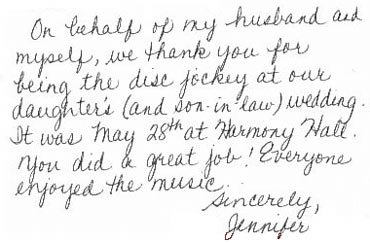 On behalf of my husband and
myself, we thank you for
being the disc jockey at our
daughter's (and son-in-law) wedding.
It was May 28th at Harmony Hall.
You did a great job! Everyone
enjoyed the music.
Sincerely,
Jennifer